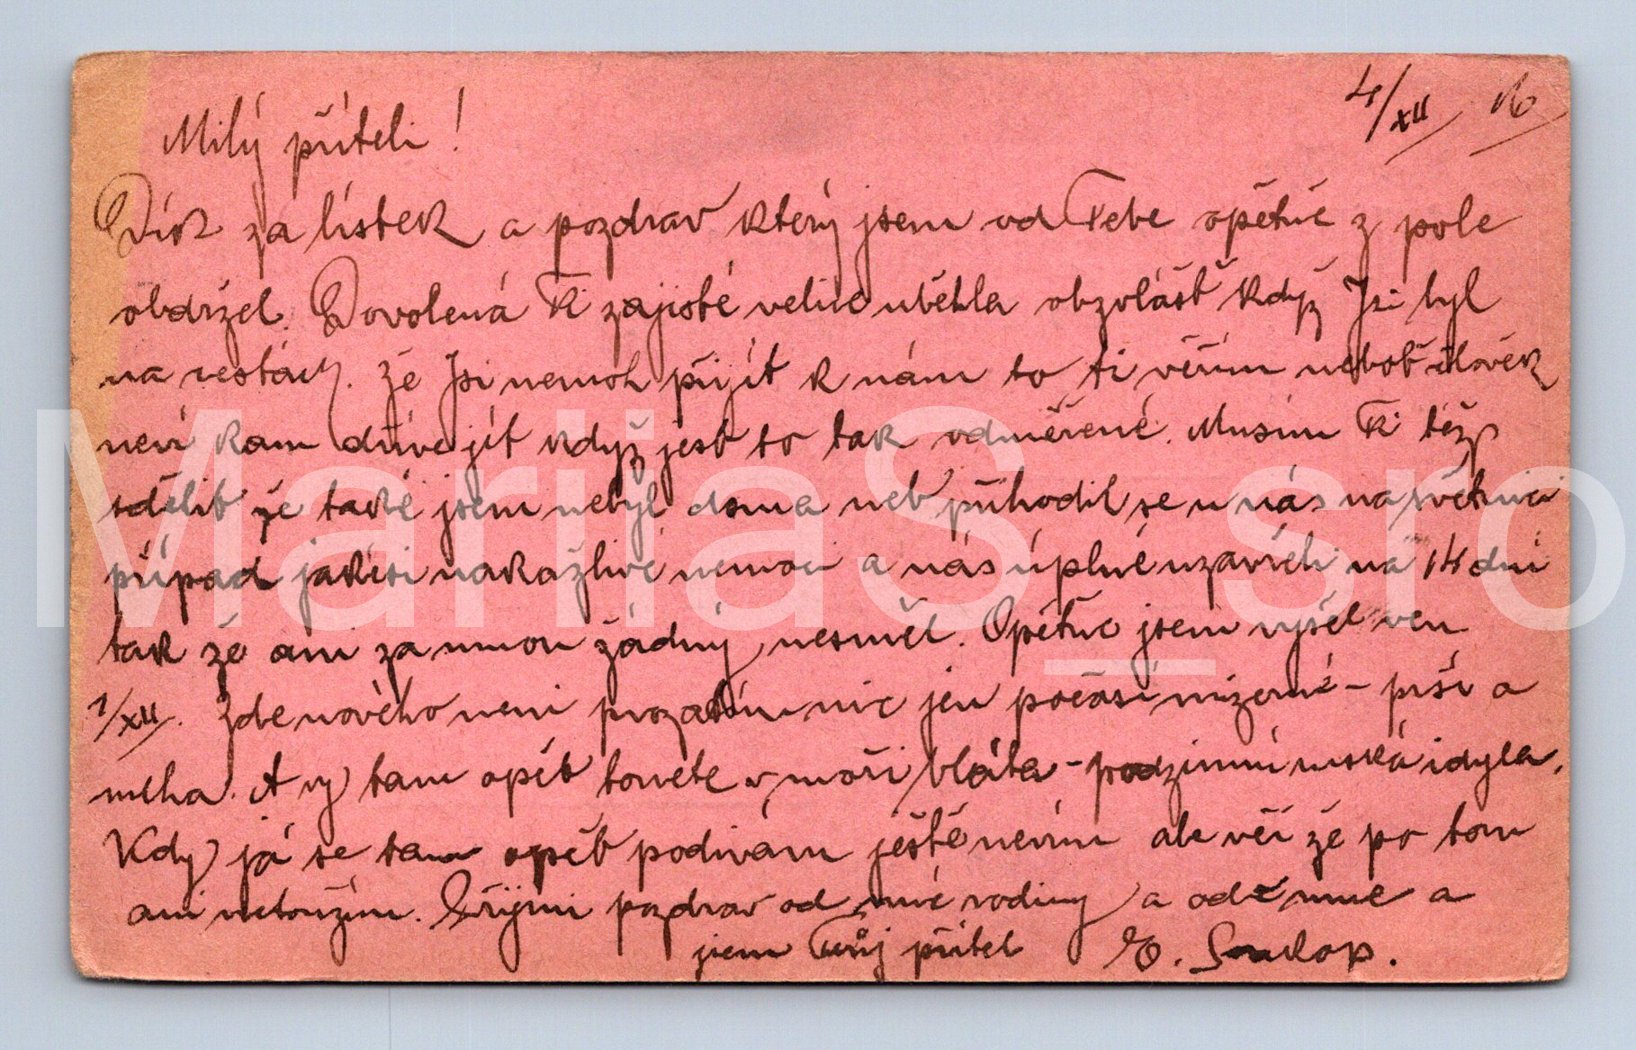 4/XII 16
Milý příteli!
Dík za lístek a pozdrav který jsem od Tebe opětně z pole
obdržel. Dovolená Ti zajisté velice uběhla obzvlášť když Jsi byl
na cestách. Že Jsi nemoh přijít k nám to ti věřím neboť člověk
neví kam dříve jít když jest to tak odměřené. Musím Ti též
sdělit že také jsem nebyl doma neb přihodil se u nás na světnici
případ jakési nakažlivé nemoci a nás úplně uzavřeli na 14 dní
tak že ani za mnou žádný nesměl. Opětně jsem vyšel ven
1/XII. Zde nového neni prozatím nic jen počasí mizerné - prší a
mlha. A vy tam opět tonete v moři bláta - podzimní ruská idyla.
Kdy já se tam opět podívám ještě nevím ale věř že po tom
ani netoužím. Přijmi pozdrav od mé rodiny a odemne a
jsem Tvůj přítel E. Soukop.
MariiaS_sro